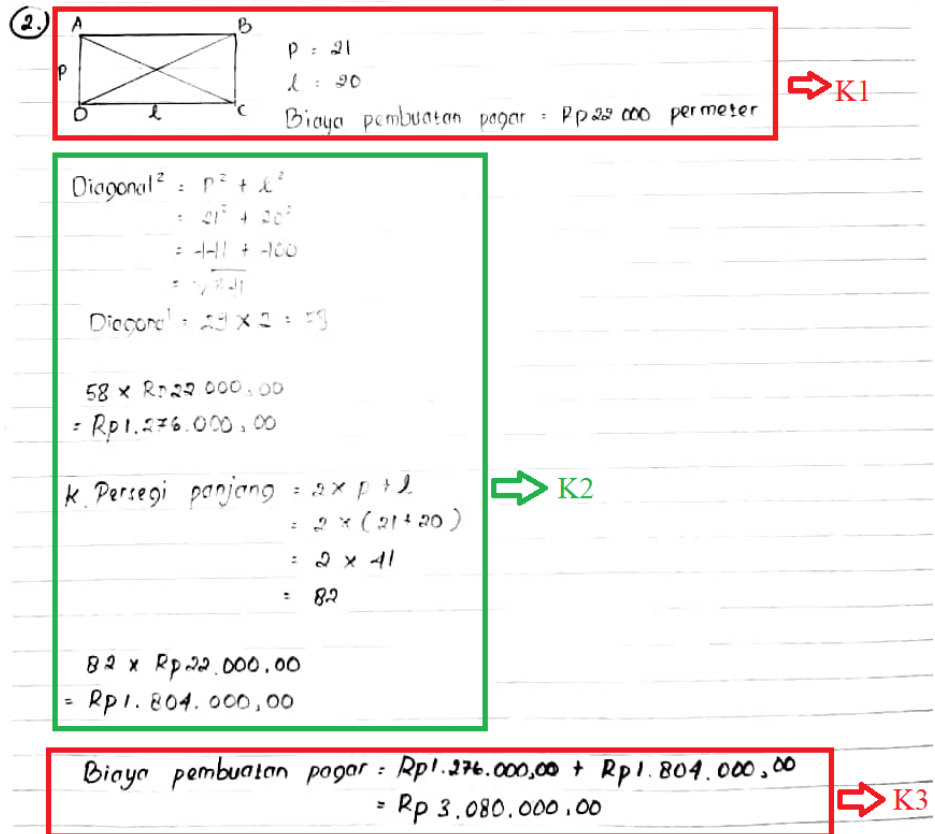 2.)
A B
P
D l C
P : 21
l : 20
Biaya pembuatan pagar = Rp22 000 permeter
K1
Diagonal² = P² + l²
= 21² + 20²
= 441 + 400
= √841
Diagonal = 29 × 2 = 58
58 × Rp22 000,00
= Rp1.276.000,00
k. Persegi panjang = 2 × p + l
= 2 × (21 + 20)
= 2 × 41
= 82
K2
82 × Rp22.000,00
= Rp1.804.000,00
Biaya pembuatan pagar = Rp1.276.000,00 + Rp1.804.000,00
= Rp 3.080.000,00
K3